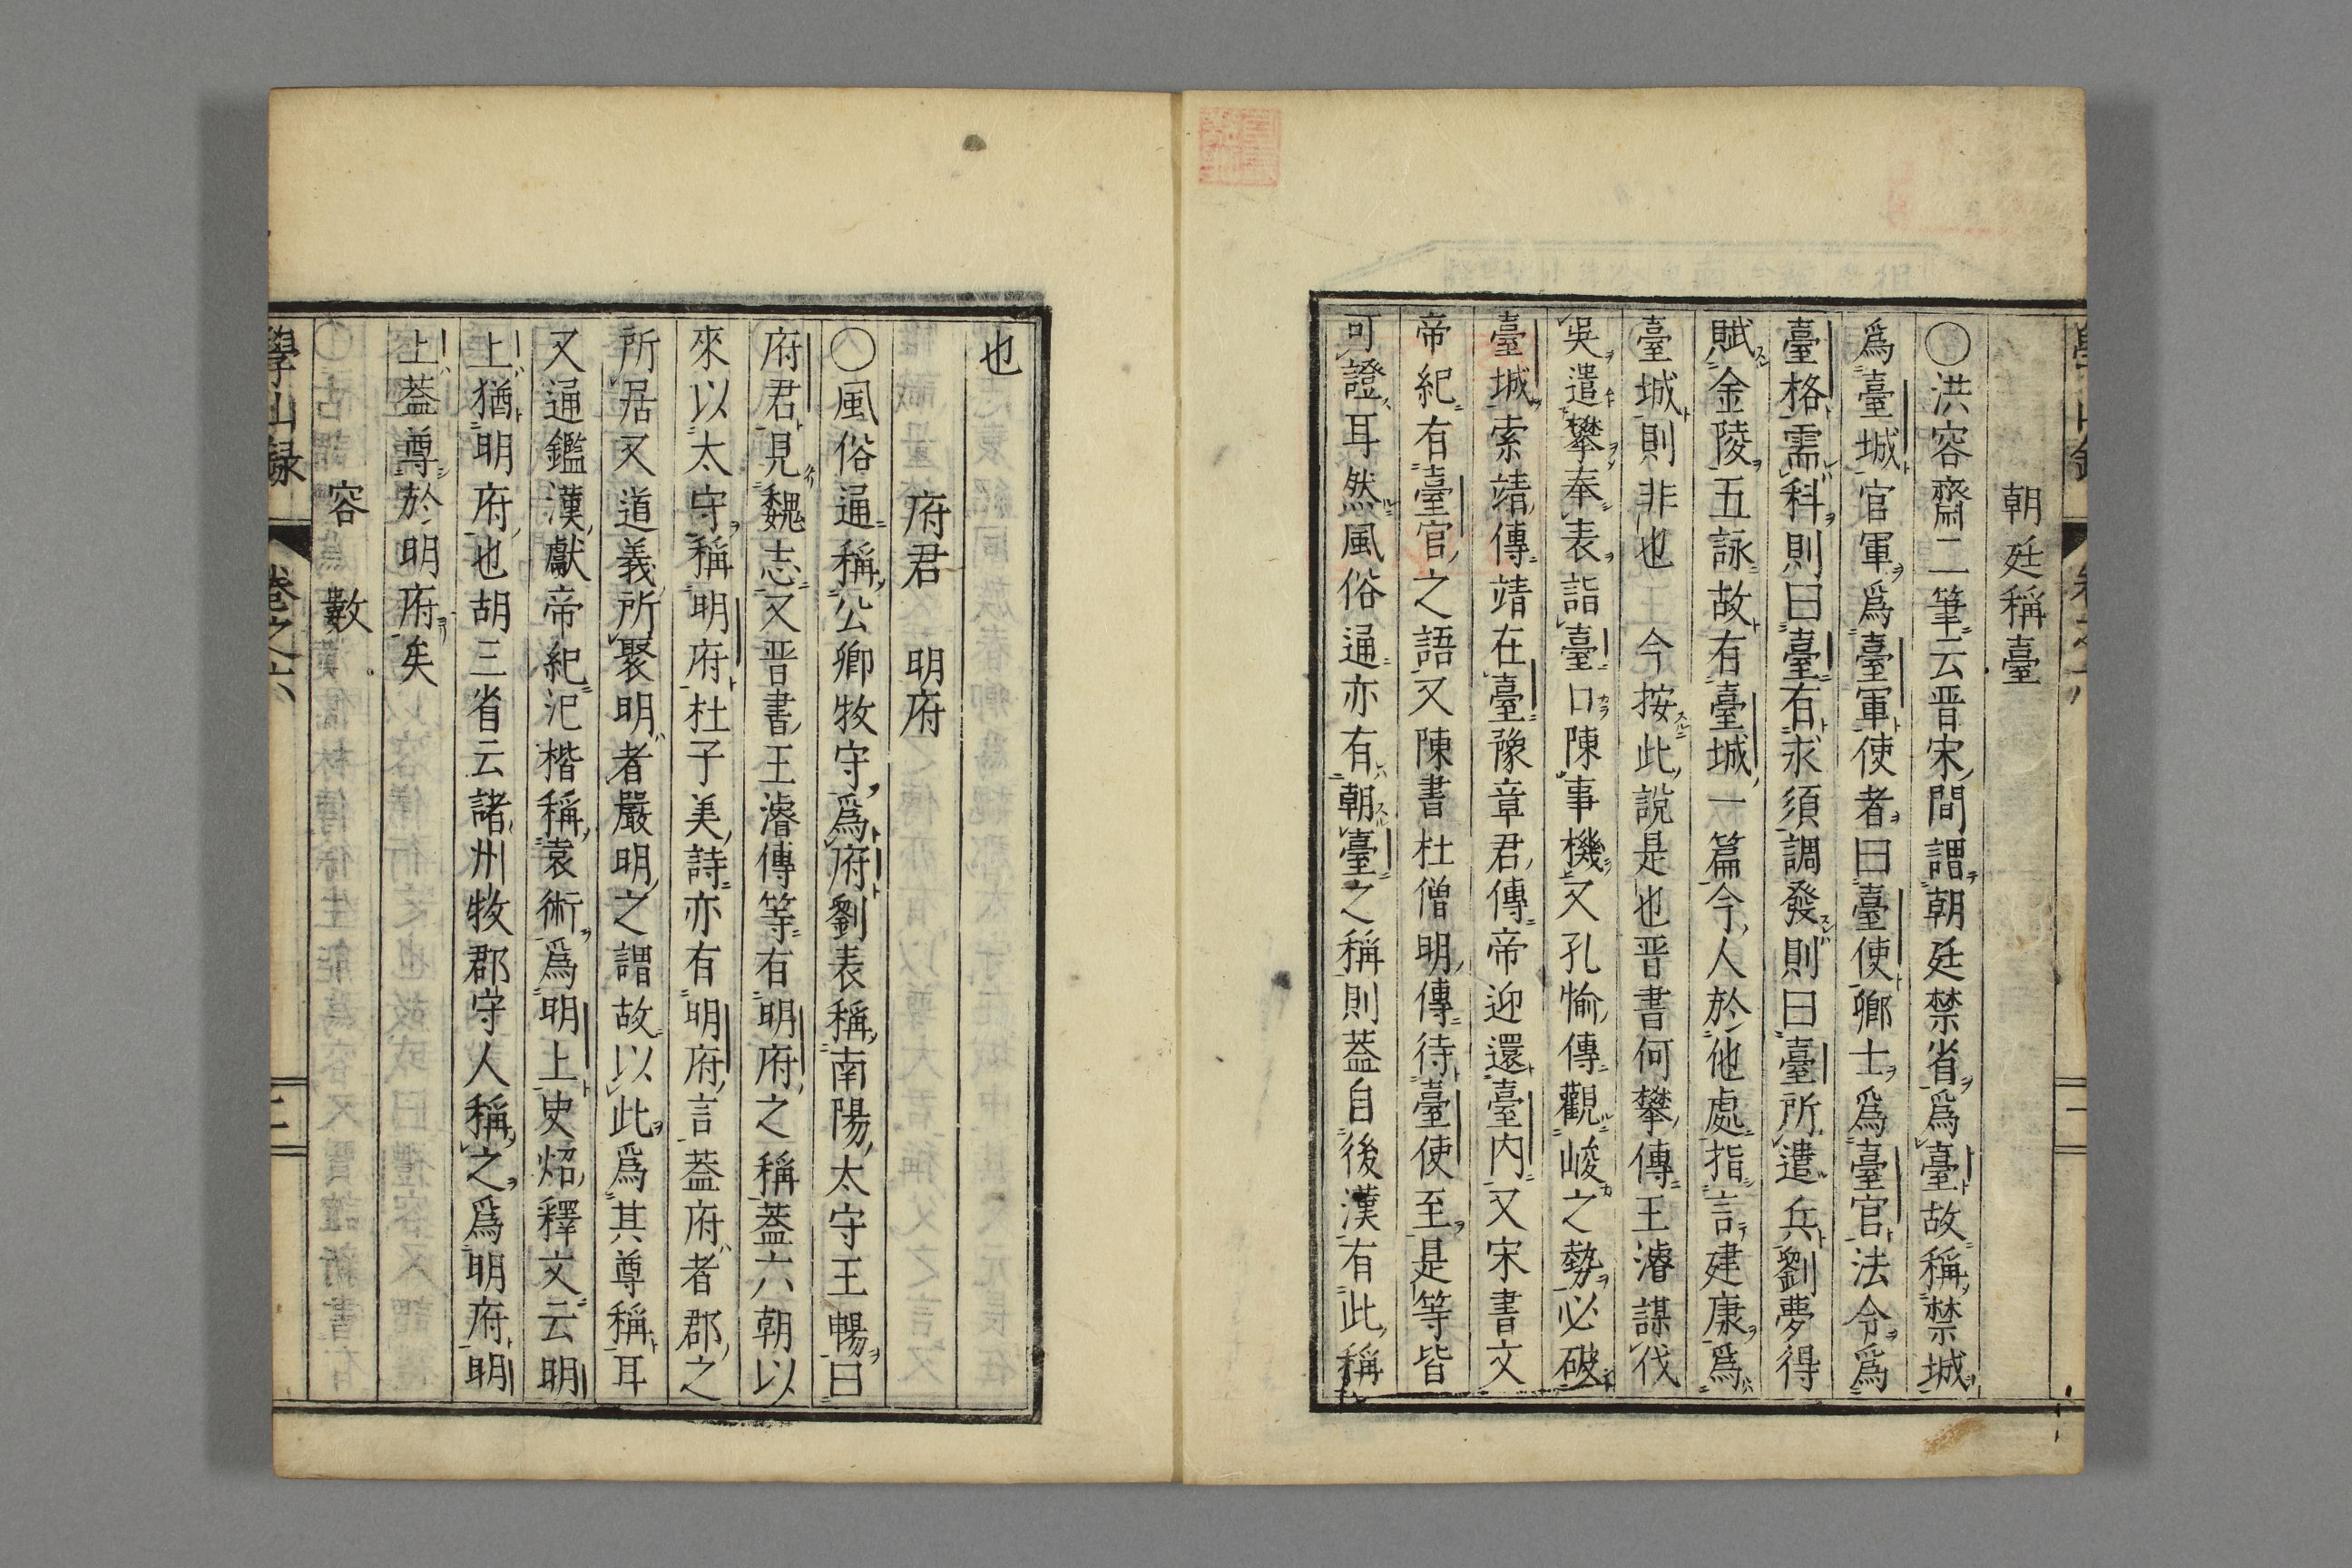 朝廷稱臺
〇洪容齋二筆云晋宋間謂朝廷禁省爲臺故稱禁城
爲臺城官軍爲臺軍使者曰臺使卿士爲臺官法令爲
臺格需科則曰臺有求須調發則曰臺所遣兵劉夢得
賦金陵五詠故有臺城一篇今人於他處指言建康爲
臺城則非也　今按此說是也晋書何攀傳王濬謀伐
吳遣攀奉表詣臺口陳事機又孔愉傳觀峻之勢必破
臺城索靖傳靖在臺豫章君傳帝迎還臺内又宋書文
帝紀有臺官之語又陳書杜僧明傳待臺使至是等皆
可證耳然風俗通亦有朝臺之稱則葢自後漢有此稱
也
府君　明府
〇風俗通稱公卿牧守爲府劉表稱南陽太守王暢曰
府君見魏志又晋書王濬傳等有明府之稱葢六朝以
來以太守稱明府杜子美詩亦有明府言葢府者郡之
所居又道義所聚明者嚴明之謂故以此爲其尊稱耳
又通鑑漢獻帝紀汜楷稱袁術爲明上史炤釋文云明
上猶明府也胡三省云諸州牧郡守人稱之爲明府明
上葢尊於明府矣
容　數
學山録　卷之六